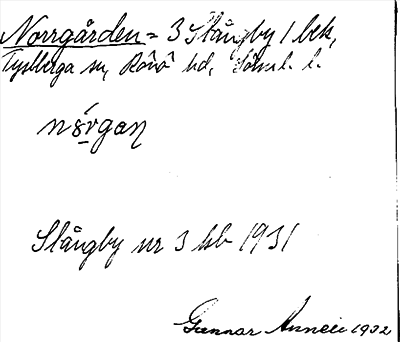 Norrgården = 3 Slångby / bek,
Tystberga sn, Rönö hd, Söml. l.
nǫ́rgaɳ
Slångby nr 3 kb 1931
Gunnar Annell 1932